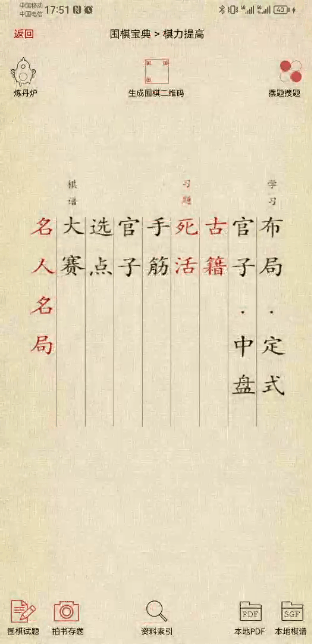 中国移动
中国电信 17:51
43
返回
围棋宝典 > 棋力提高
炼丹炉
生成围棋二维码
学习
布局·定式
官子·中盘
习题
古籍
死活
手筋
官子
选点
棋谱
大赛
名人名局
围棋试题
拍书存卷
资料索引
PDF
本地PDF
SGF
本地棋谱